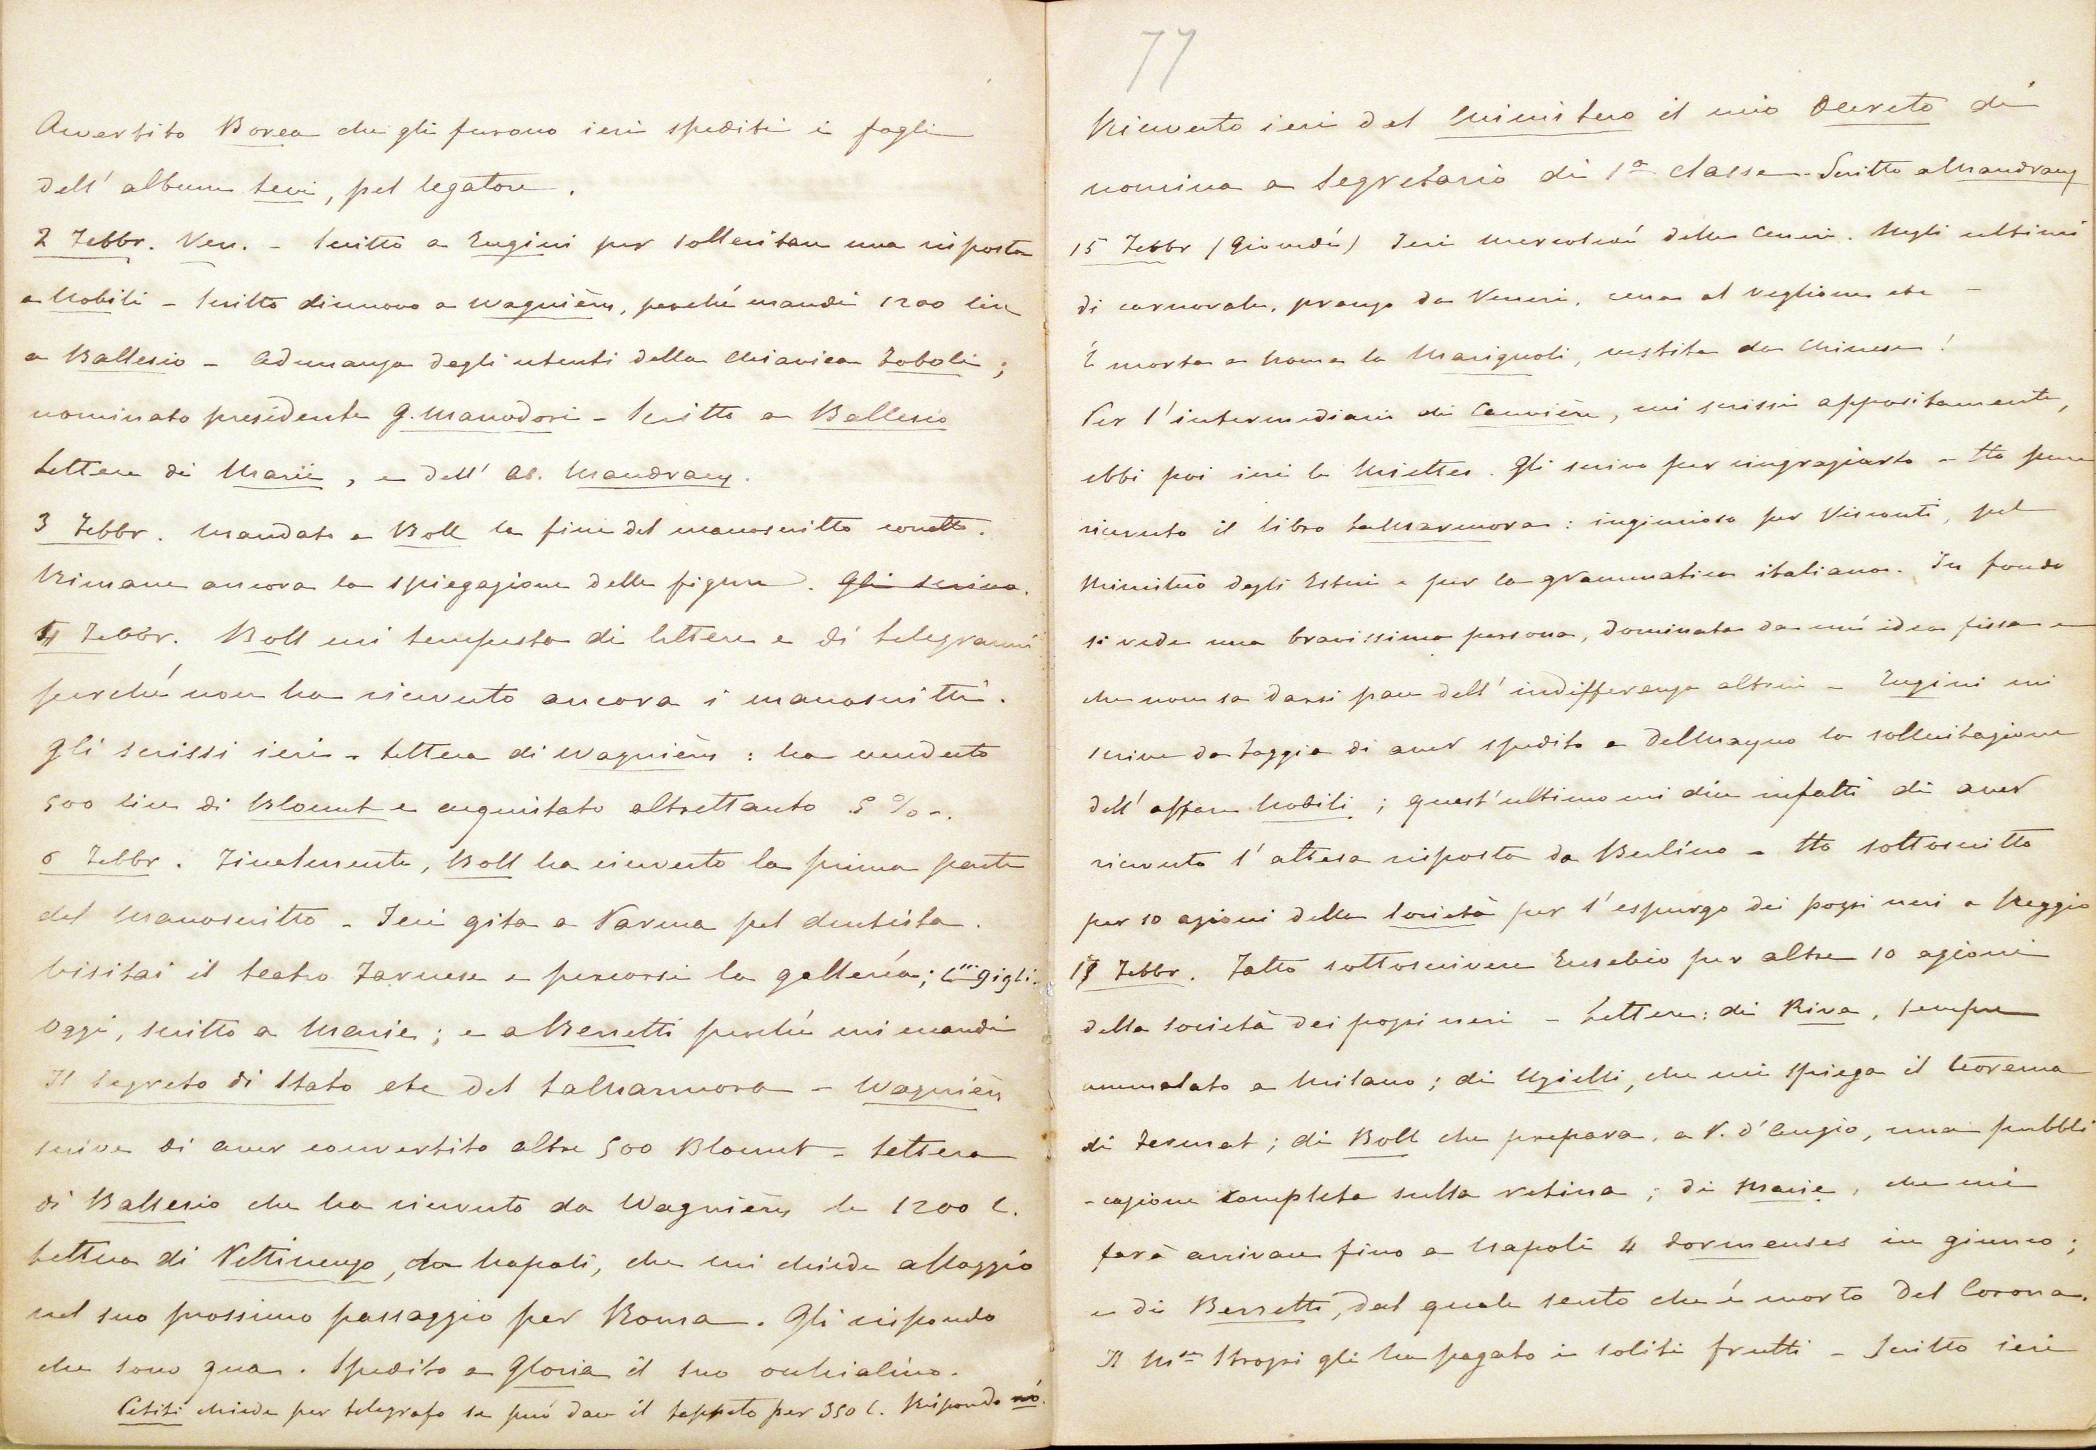 Avvertito Borea che gli furono ieri spediti i fogli
dell'album Levi, pel legatore.
2 Febbr. Ven. - Scritto a Eugini per sollecitare una risposta
a Nobili - Scritto dinuovo a Wagnière, perché mandi 1200 lire
a Ballesio - Adunanza degli utenti della Chiavica Foboli;
nominato presidente G. Manodori - Scritto a Ballesio
Lettera di Marie, e dell' Ab. Mandrany.
3 Febbr. Mandato a Boll la fine del manoscritto corretto.
Rimane ancora la spiegazione delle figure. Gli scrivo.
4 Febbr. Boll mi tempesta di lettere e di telegrammi
perché non ha ricevuto ancora i manoscritti.
Gli scrissi ieri - Lettera di Wagnière: ha venduto
500 lire di Blount e acquistato altrettanto 5 %.
6 Febbr. Finalmente, Boll ha ricevuto la prima parte
del manoscritto - Ieri gita a Parma pel dentista.
Visitai il teatro Farnese e percorsi la galleria; Gigli.
Oggi, scritto a Marie; e a Bersetti perché mi mandi
Il Segreto di Stato etc del LaMarmora - Wagnière
scrive di aver convertito altre 500 Blount - Lettera
di Ballesio che ha ricevuto da Wagnière le 1200 L.
Lettera di Pettinengo, da Napoli, che mi chiede alloggio
nel suo prossimo passaggio per Roma. Gli rispondo
che sono qua. Spedito a Gloria il suo occhialino.
Petiti chiede per telegrafo se può dare il tappeto per 350 L. Rispondo nò.
77
Ricevuto ieri dal Ministero il mio Decreto di
nomina a Segretario di 1a classe - Scritto a Mandrany
15 Febbr (Giovedí) Ieri mercoledí delle Ceneri. Negli ultimi
di carnovale, pranzo da Veneri, cena al veglione etc -
È morta a Roma la Marignoli, vestita da Chinese!
Per l'intermediario di Cauvière, cui scrissi appositamente,
ebbi poi ieri le Miettes. Gli scrivo per ringraziarlo - Ho pure
ricevuto il libro LaMarmora: ingiurioso per Visconti, pel
Ministero degli Esteri e per la grammatica italiana. In fondo
si vede una bravissima persona, dominata da un'idea fissa e
che non sa darsi pace dell'indifferenza altrui - Eugini mi
scrive da Taggia di aver spedito a DelMayno la sollecitazione
dell'affare Nobili; quest'ultimo mi dice infatti di aver
ricevuto l'attesa risposta da Berlino - Ho sottoscritto
per 10 azioni della Società per l'espurgo dei pozzi neri a Reggio
Febbr. Fatto sottoscrivere Eusebio per altre 10 azioni
della società dei pozzi neri - Lettere: di Riva, sempre
ammalato a Milano; di Uzielli, che mi spiega il teorema
di Fermat; di Boll che prepara, a P. d'Anzio, una pubbli
-cazione completa sulla retina; di Marie, che mi
farà arrivare fino a Napoli 4 dormeuses in giunco;
e di Bersetti, dal quale sento che è morto Del Corona.
Il Stropsi gli ha pagato i soliti frutti - Scritto ieri